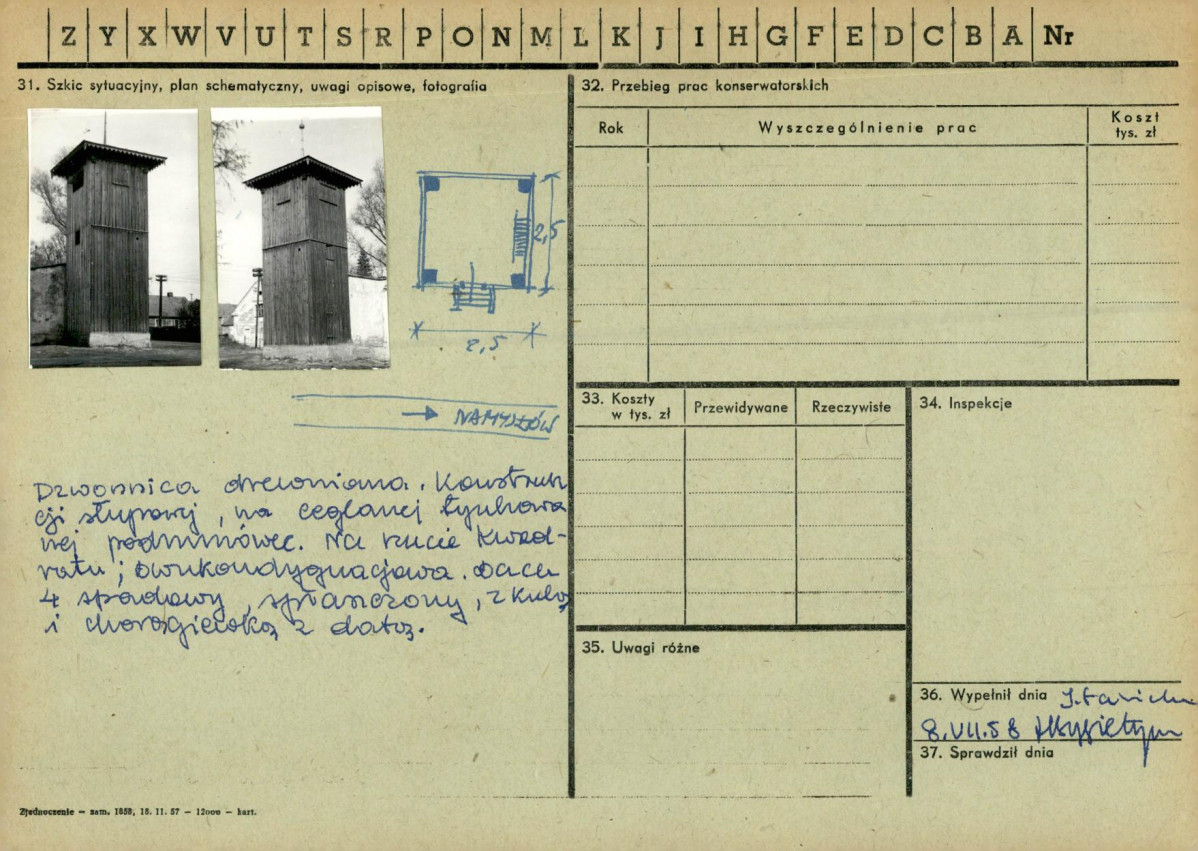 Z Y X W V U T S R P O N M L K J I H G F E D C B A Nr
31. Szkic sytuacyjny, plan schematyczny, uwagi opisowe, fotografia
2,5
2,5
→ NAMYSŁÓW
Dzwonnica drewniana. Konstruk
cji słupowej, na ceglanej tynkowa
nej podmurówce. Na rzucie kwad-
ratu, dwukondygnacjowa. Dach
4 spadowy, spłaszczony, z kulą
i chorągiewką z datą.
32. Przebieg prac konserwatorskich
Rok
Wyszczególnienie prac
Koszt
tys. zł
33. Koszty
w tys. zł
Przewidywane
Rzeczywiste
34. Inspekcje
35. Uwagi różne
36. Wypełnił dnia
8.VII.58
37. Sprawdził dnia
Zjednoczenie — zam. 1858, 18. 11. 57 — 12000 — kart.